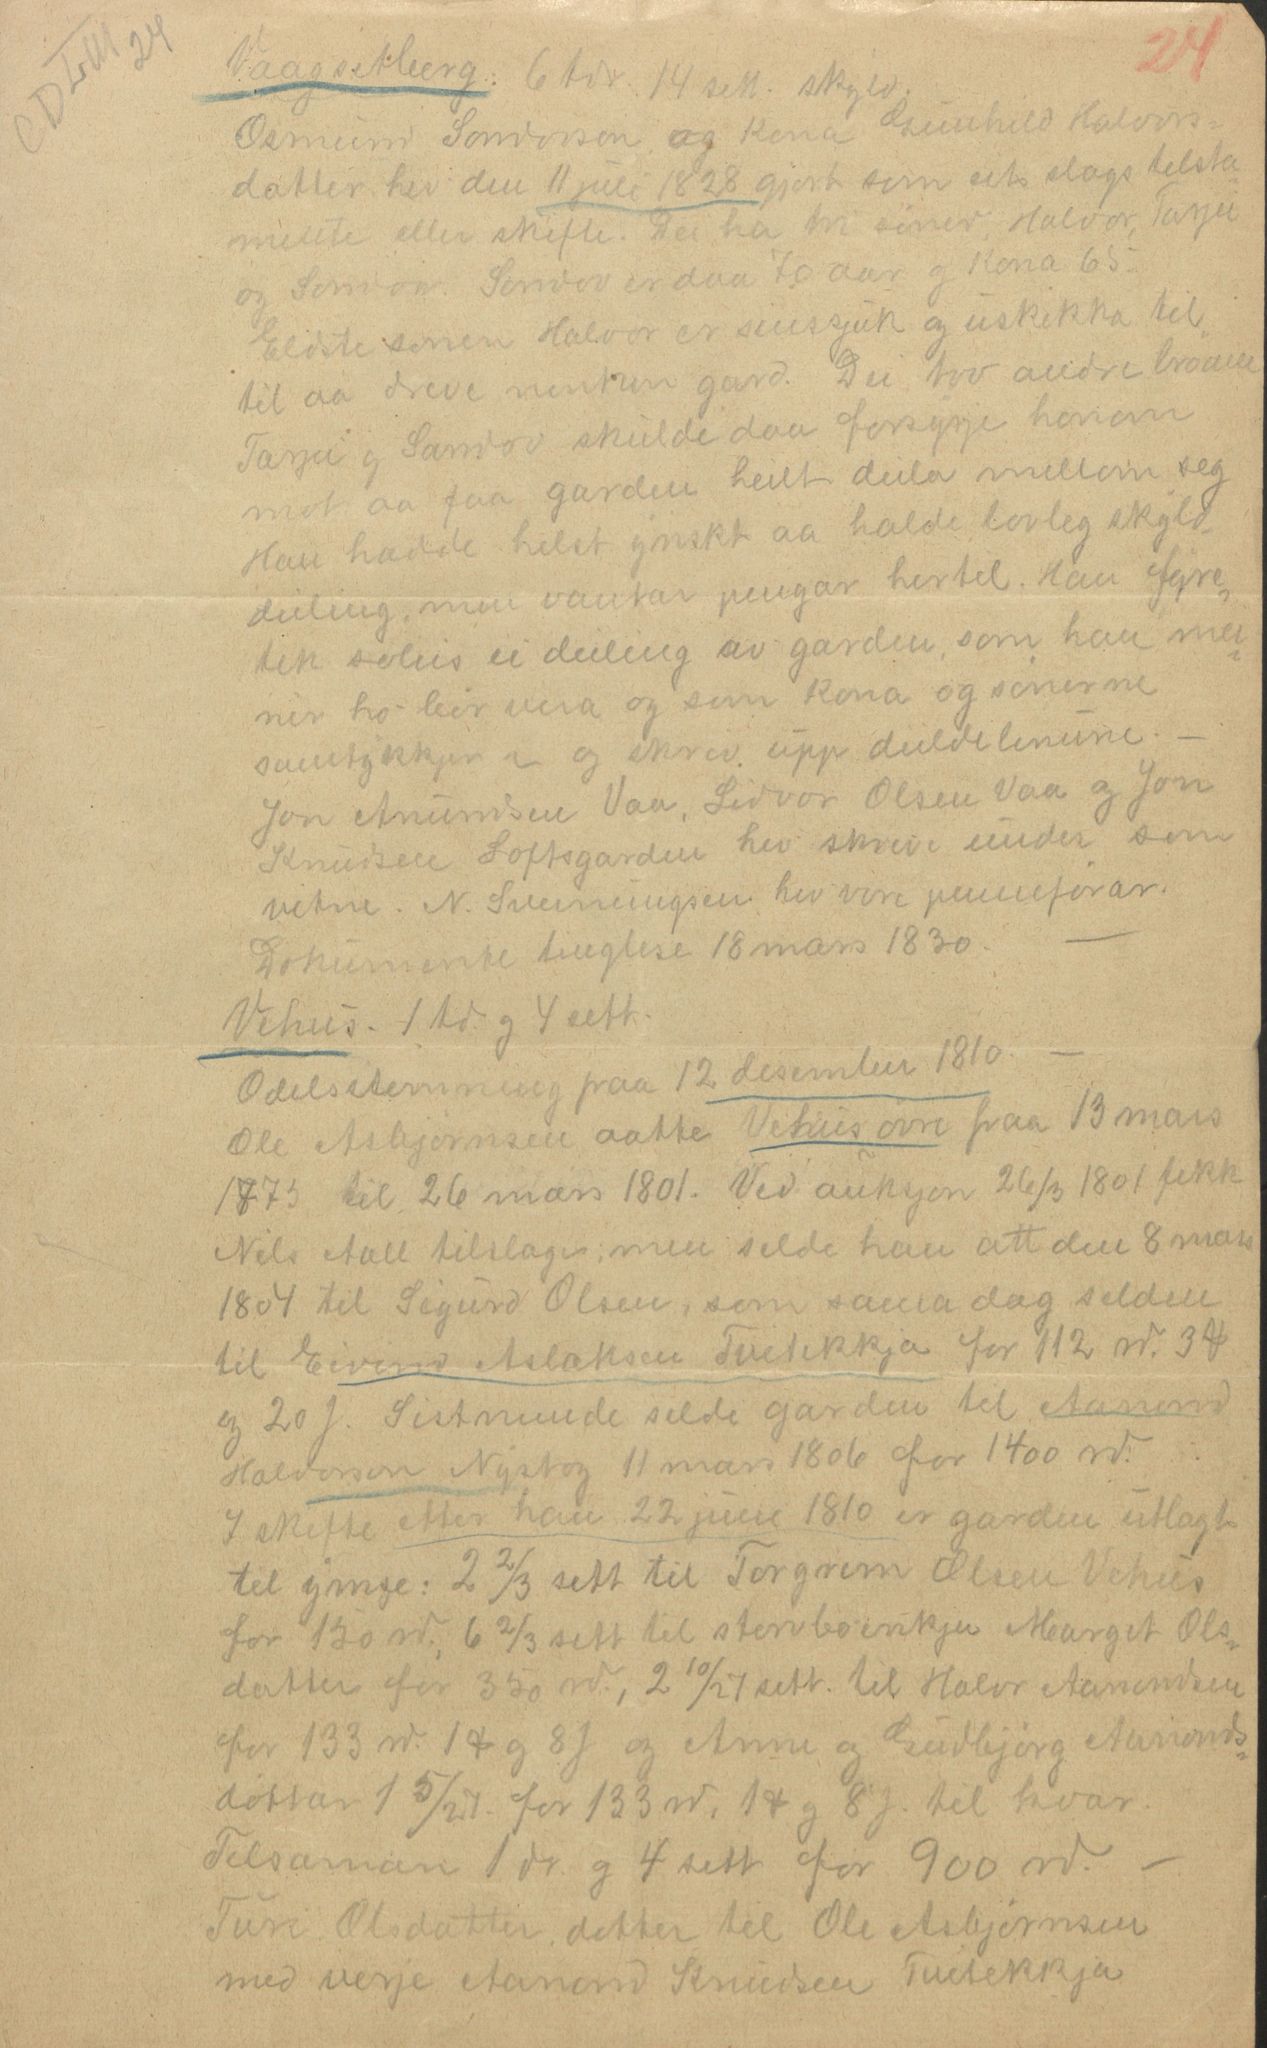 24
Vaagsetberg. 6 tdr. 14 sett. skyld.
Osmund Sondorson og Kona Gunhild Halvors-
datter hev den 11 juli 1828 gjort som eit slags telsta-
mente eller skifte. Dei ha tri söner, Halvor, Tarjei
og Sondov. Sondov er daa 70 aar og Kona 65.
Eldste sonen Halvor er sinssjuk og uskikka til
til aa dreve nentun gard. Dei tvo andre brödne
Tarjei og Sandov skulde daa forsyrje honom
mot aa faa garden heilt deila mellom seg
Han hadde helst ynskt aa halde lovleg skyld-
deiling, men vantar pengar hertil. Han fyre-
tek soleis ei deiling av garden, som han mei-
ner ho bör vera og som Kona og sönerne
samtykkjer i og skrev upp deildelinune. —
Jon Anundsen Vaa, Lidvor Olsen Vaa og Jon
Knudsen Loftsgarden hev skrive under som
vitne. N. Sveinungsen hev vore penneförar.
Dokumente tinglese 18 mars 1830. —
Vehus. 1 td. og 4 sett.
Odelsstemning fraa 12 desember 1810. —
Ole Asbjörnsen aatte Vehus övre fraa 13 mars
1773 til 26 mars 1801. Ved auksjon 26/3 1801 fekk
Nils Aall tilslage, men selde han att den 8 mars
1804 til Sigurd Olsen, som sama dag selden
til Eivind Aslaksen Tveitekkja for 112 rd. 3
og 20 s. Sistnemde selde garden til Aanond
Halvorson Nystog 11 mars 1806 for 1400 rd.
I skifte etter han 22 juni 1810 er garden utlagt
til ymse: 2 2/3 sett til Torgrim Olsen Vehus
for 150 rd., 6 2/3 sett til stervboenkju Marget Ols-
datter for 350 rd., 2 10/27 sett. til Halvor Aanondsen
for 133 rd. 1 og 8 s og Anne og Gudbjörg Aanonds-
döttar 1 5/27. for 133 rd, 1 og 8 s. til kvar.
Tilsaman 1 td. og 4 sett for 900 rd. —
Turi Olsdatter, dotter til Ole Asbjörnsen
med verje Aanond Knudsen Tveitekkja